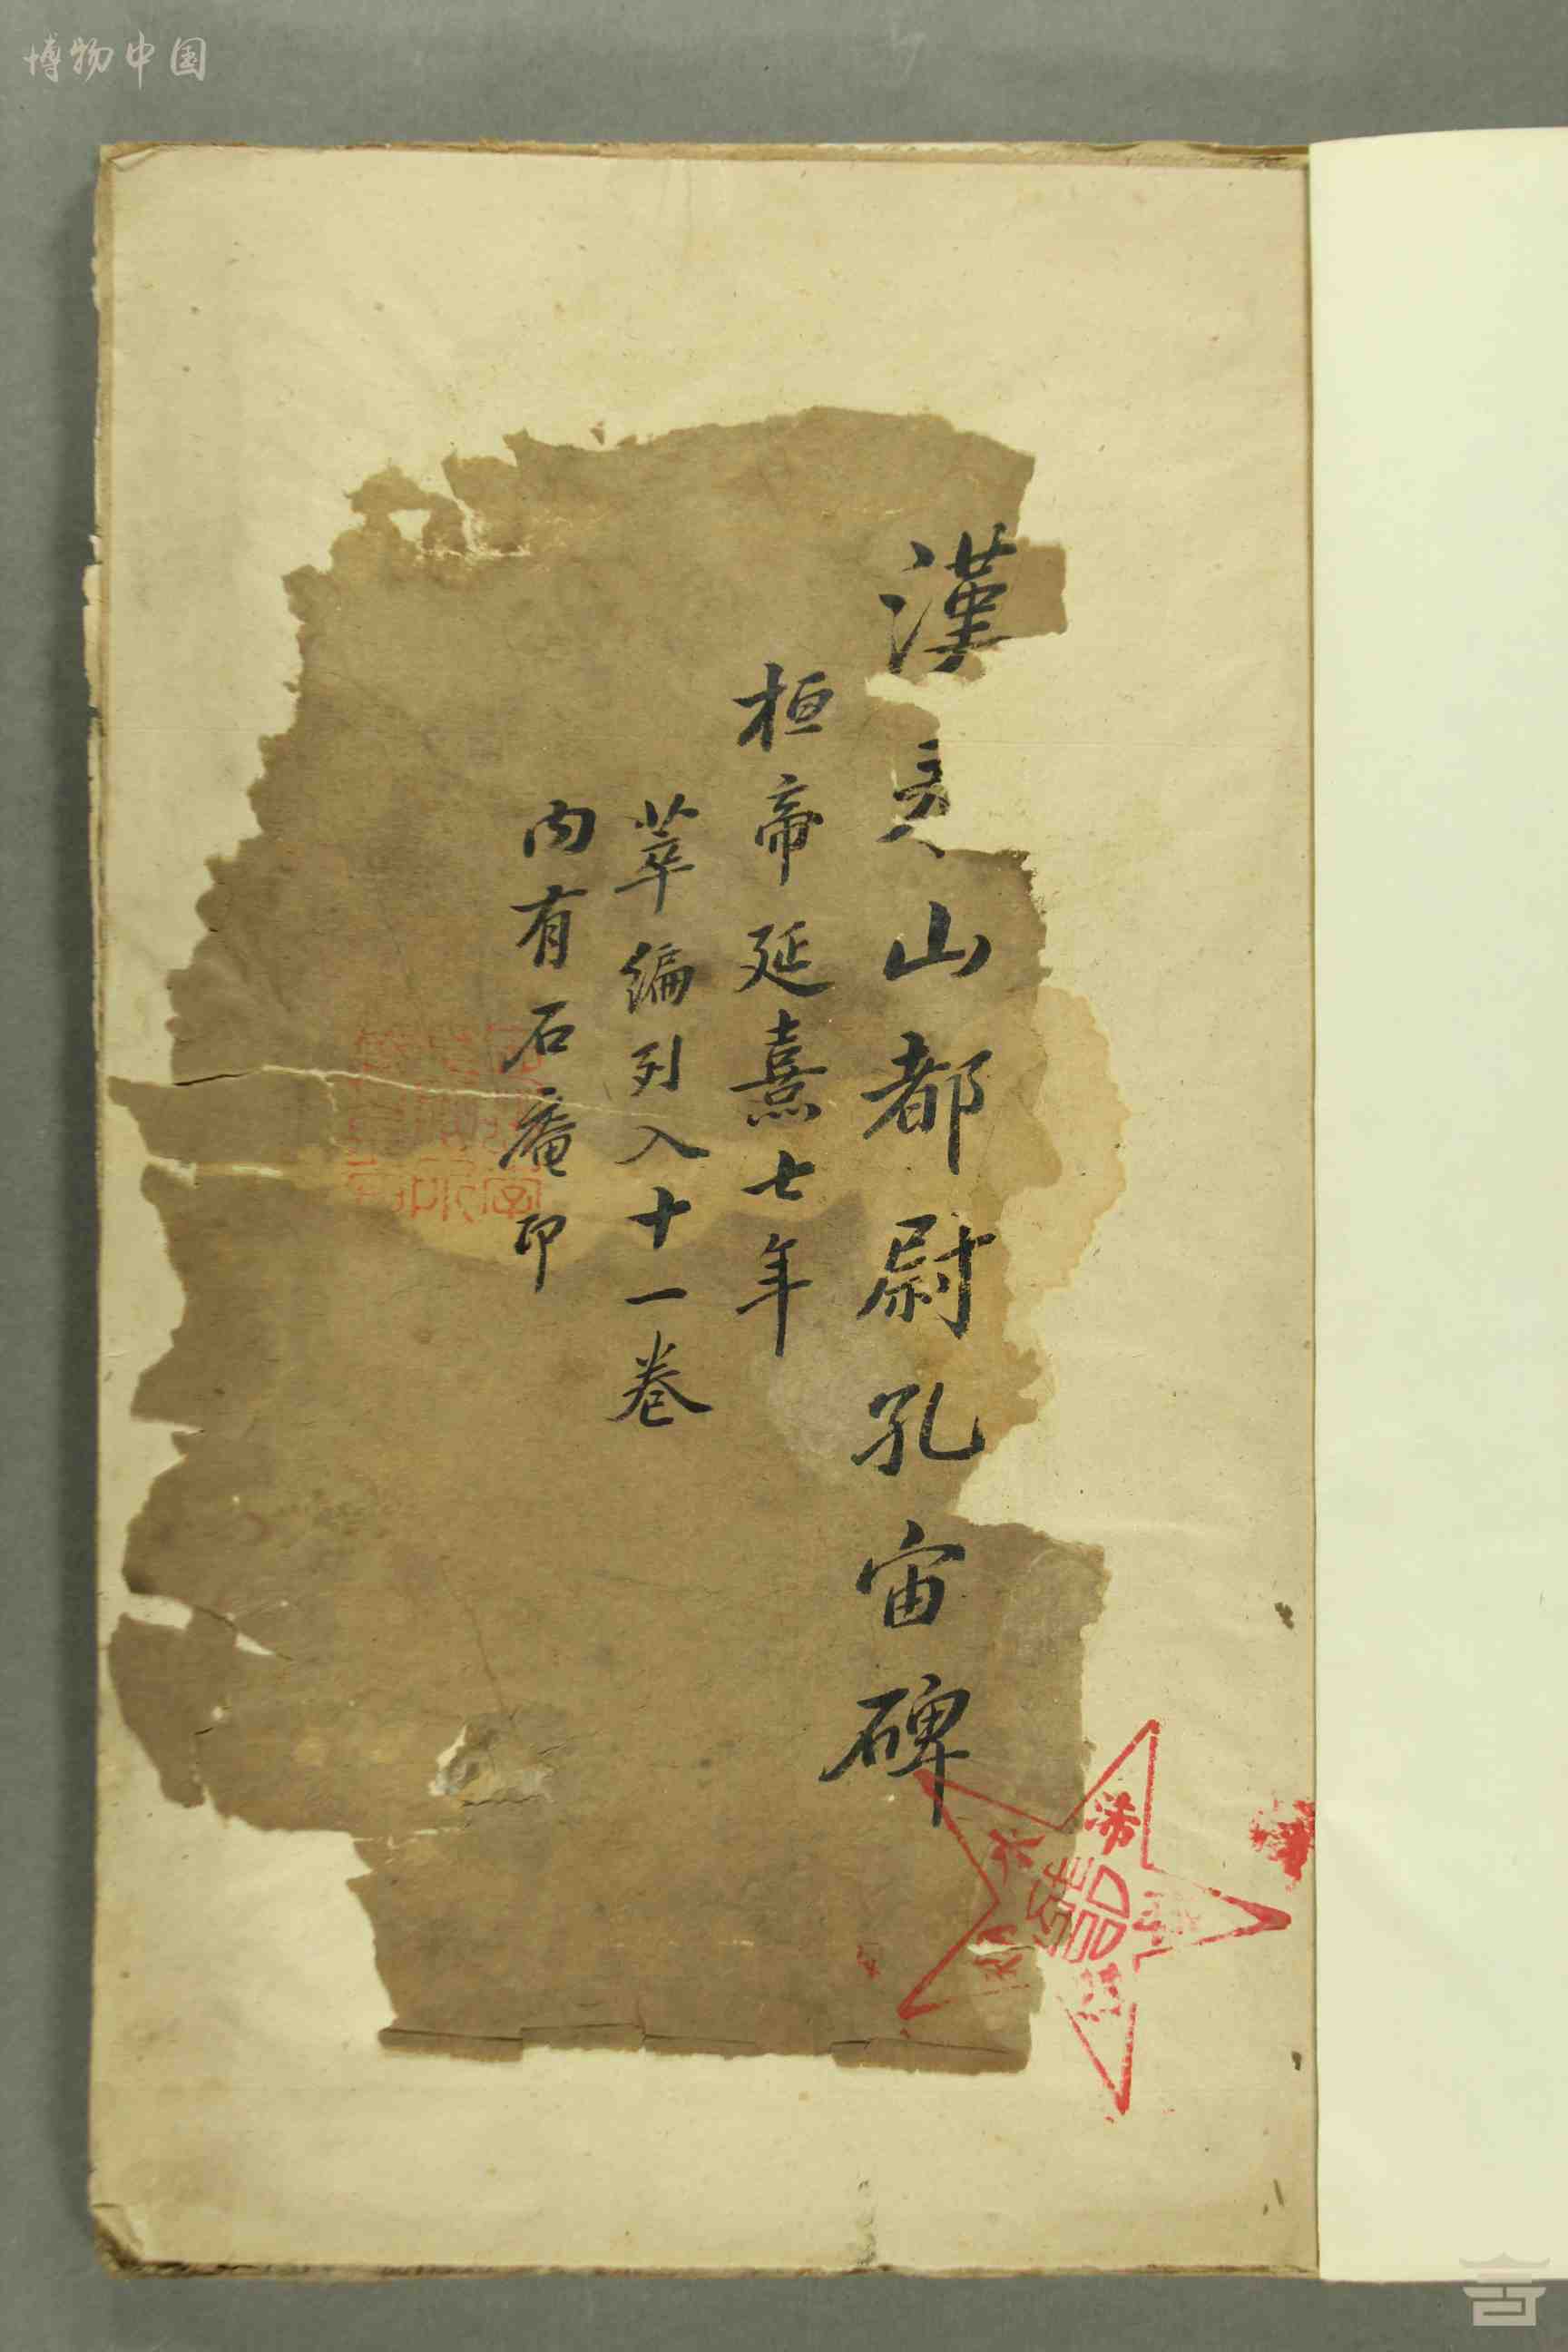 博物中国
漢
山都尉孔宙碑
桓帝延熹七年
萃編列入十一卷
內有石庵印